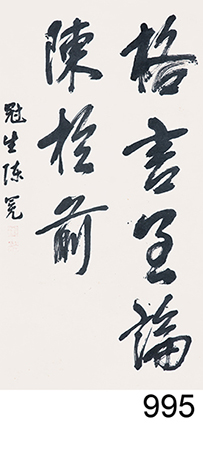 格言至論
陳於前
冠生陈冕
995